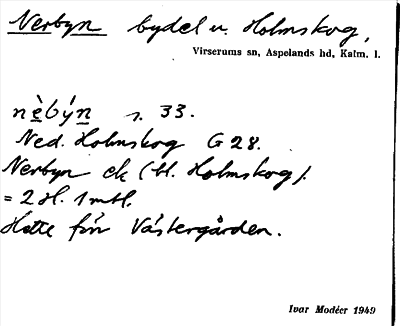 Nerbyn bydel u. Holmskog,
Virserums sn, Aspelands hd, Kalm. l.
nèbýn s. 33.
Ned. Holmskog G 28.
Nerbyn ek (bl. Holmskog).
= 2 H. 1 mtl.
Hette förr Västergården.
Ivar Modéer 1949